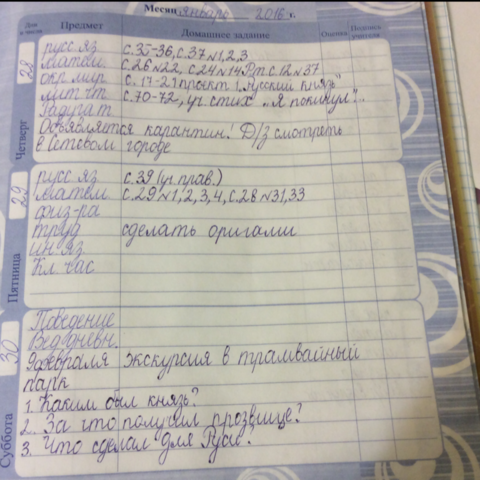 Месяц январь 2016 г.
Дни и числа Предмет Домашнее задание Оценка Подпись учителя
28 Четверг
русс яз с.35-36, с.37 №1,2,3
матем с.26 №22, с.24 №14 Рт с.12 №37
окр мир с. 17-21 проект "Русский князь"
лит чт с.70-72, уч стих "Я покинул"..
Объявляется карантин! Д/з смотреть
в Сетевом городе
29 Пятница
русс яз с.39 (уч. прав.)
матем с.29 №1,2,3,4, с.28 №31,33
физ-ра
труд сделать оригами
ин. яз
Кл. час
30 Суббота
Поведение
Вед. дневн.
9 февраля экскурсия в трамвайный
парк
1. Каким был князь?
2. За что получил прозвище?
3. Что сделал для Руси?